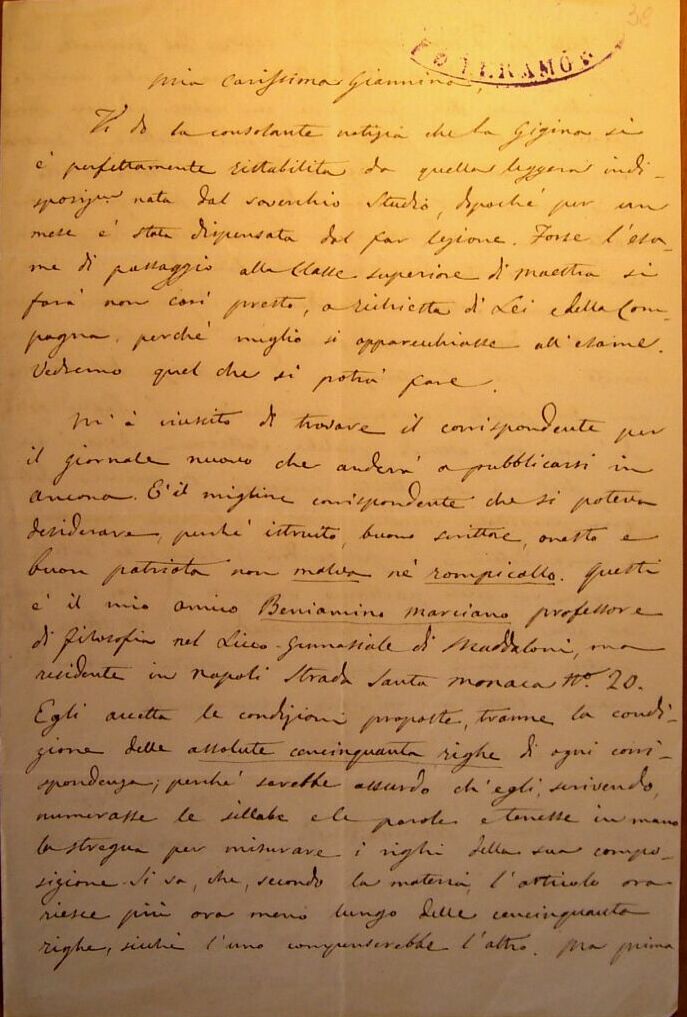 38
TERAMO
Mia Carissima Giannina,
Vi do la consolante notizia che la Gigina si
è perfettamente ristabilita da quella leggera indi-
sposizne nata dal soverchio Studio, dipoichè per un
mese è stata dispensata dal far lezione. Forse l'esa-
me di passaggio alla Classe superiore di maestra si
farà non così presto, a richiesta di Lei e della Com-
pagna, perchè meglio si apparecchiasse all'esame.
Vedremo quel che si potrà fare.
M'è riuscito di trovare il corrispondente per
il giornale nuovo che anderà a pubblicarsi in
Ancona. È il migliore corrispondente che si poteva
desiderare, perchè istruito, buono scrittore, onesto e
buon patriota non malva nè rompicollo. Questi
è il mio amico Beniamino Marciano professore
di filosofia nel Liceo-Ginnasiale di Maddaloni, ma
residente in Napoli Strada Santa Monaca No. 20.
Egli accetta le condizioni proposte, tranne la condi-
zione delle assolute cencinquanta righe di ogni corri-
spondenza; perchè sarebbe assurdo ch'egli, scrivendo,
numerasse le sillabe e le parole e tenesse in mano
la stregua per misurare i righi della sua compo-
sizione. Si sa, che, secondo la materia, l'articolo ora
riesce più ora meno lungo delle cencinquanta
righe, sicchè l'uno compenserebbe l'altro. Ma prima